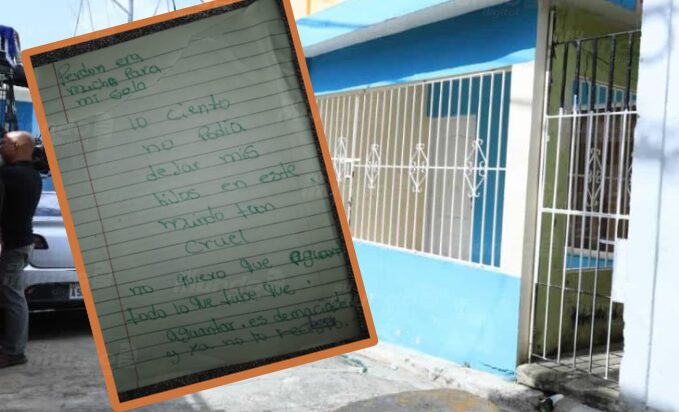 Perdon era
mucho Para
mi Sola
lo ciento
no Podia
dejar mis
hijos en este
mundo tan
cruel
no quiero que aguant
todo lo que tube que
aguantar. es demaciado
y ya no lo
digital